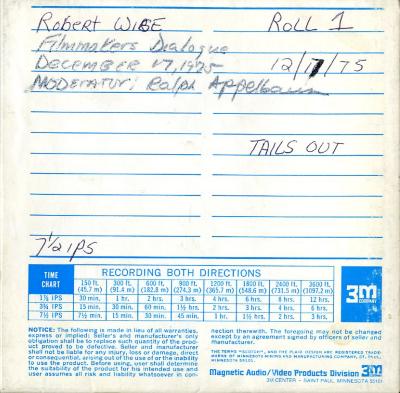 Robert WISE ROLL 1
Filmmakers Dialogue
December 17, 1975 12/17/75
Moderator: Ralph Appelbaum
TAILS OUT
7½ IPS
TIME CHART
RECORDING BOTH DIRECTIONS
150 ft. (45,7 m) 300 ft. (91.4 m) 600 ft. (182,8 m) 900 ft. (274,3 m) 1200 ft. (365,7 m) 1800 ft. (548,6 m) 2400 ft. (731,5 m) 3600 ft. (1097,2 m)
1⅞ IPS 30 min. 1 hr. 2 hrs. 3 hrs. 4 hrs. 6 hrs. 8 hrs. 12 hrs.
3¾ IPS 15 min. 30 min. 60 min. 1½ hrs. 2 hrs. 3 hrs. 4 hrs. 6 hrs.
7½ IPS 7½ min. 15 min. 30 min. 45 min. 1 hr. 1½ hrs. 2 hrs. 3 hrs.
3M COMPANY
NOTICE: The following is made in lieu of all warranties, express or implied: Seller's and manufacturer's only obligation shall be to replace such quantity of the product proved to be defective. Neither seller nor manufacturer shall not be liable for any injury, loss or damage, direct or consequential, arising out of the use of or the inability to use the product. Before using, user shall determine the suitability of the product for his intended use and user assumes all risk and liability whatsoever in connection therewith. The foregoing may not be changed except by an agreement signed by officers of seller and manufacturer.
THE TERMS "SCOTCH", AND THE PLAID DESIGN ARE REGISTERED TRADEMARKS OF MINNESOTA MINING AND MANUFACTURING COMPANY, ST. PAUL, MINNESOTA 55101.
Magnetic Audio/Video Products Division 3M COMPANY
3M CENTER • SAINT PAUL, MINNESOTA 55101